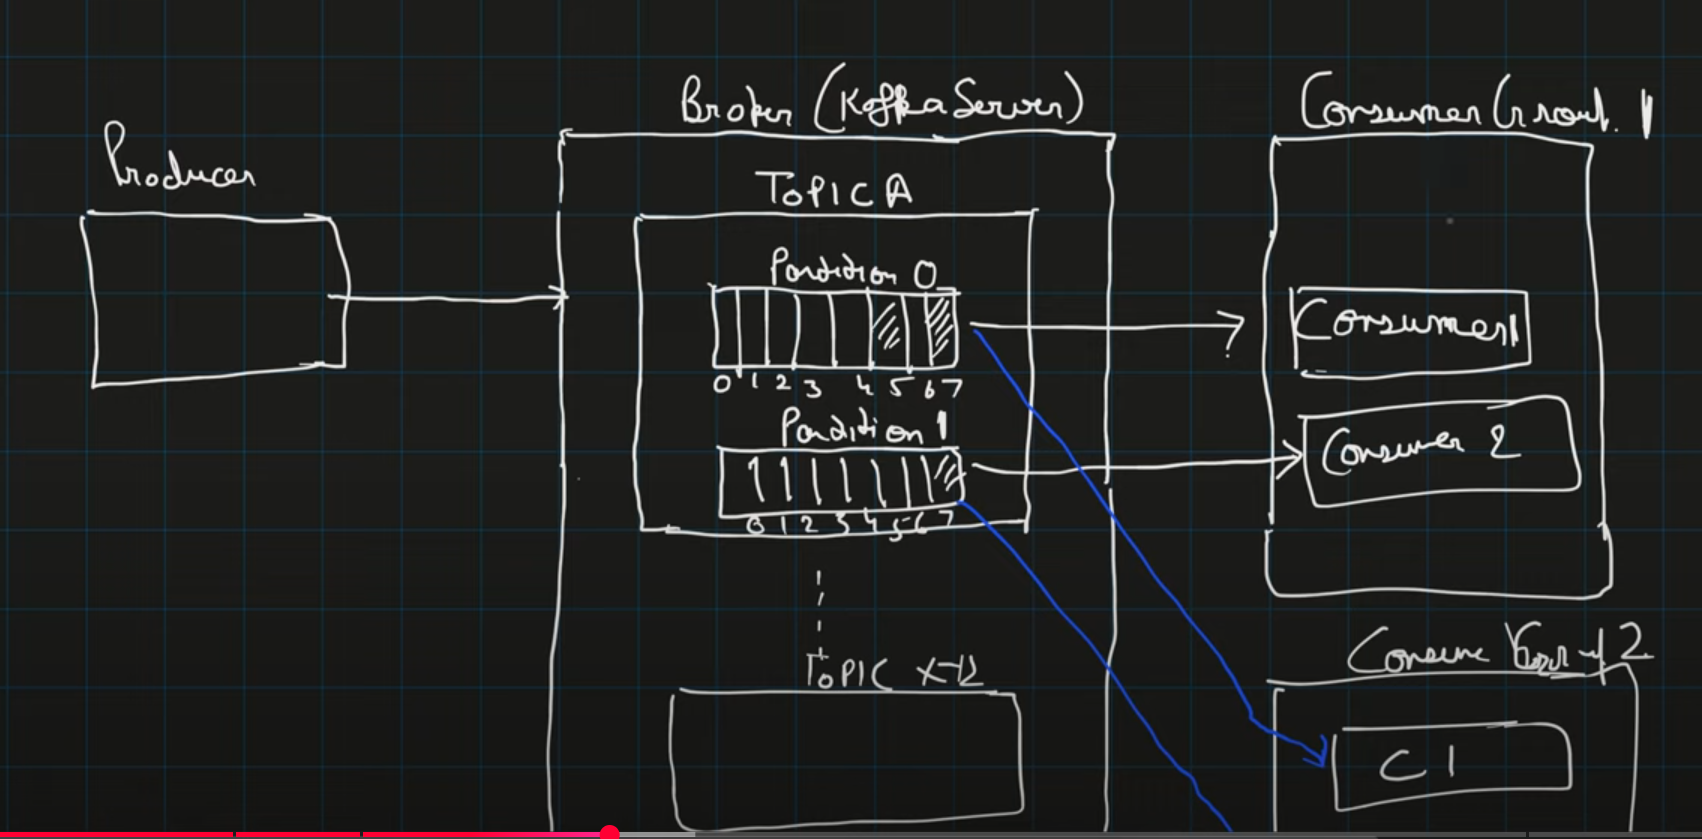 Producer
Broker (Kafka Server)
TOPIC A
Partition 0
0 1 2 3 4 5 6 7
Partition 1
0 1 2 3 4 5 6 7
TOPIC
Consumer Group 1
Consumer 1
Consumer 2
Consume Group 2
C 1